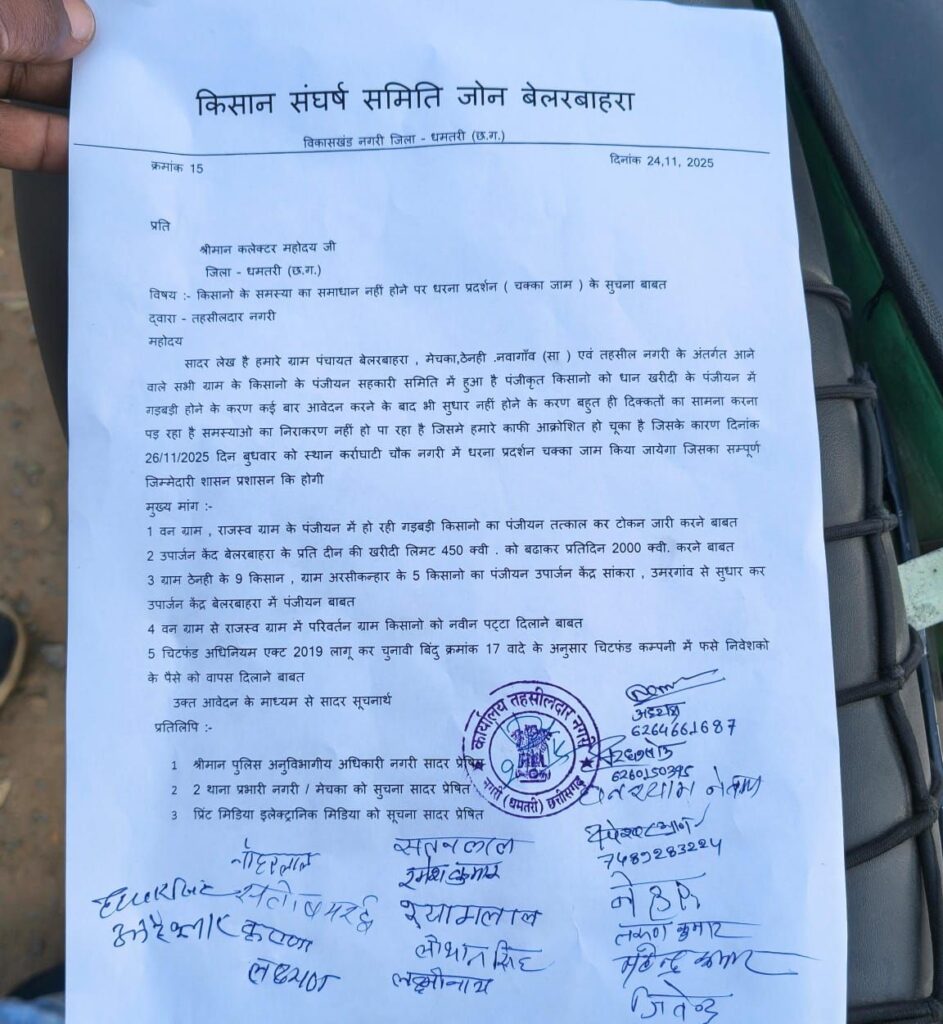 किसान संघर्ष समिति जोन बेलरबाहरा
विकासखंड नगरी जिला - धमतरी (छ.ग.)
क्रमांक 15
दिनांक 24,11, 2025
प्रति
श्रीमान कलेक्टर महोदय जी
जिला - धमतरी (छ.ग.)
विषय :- किसानो के समस्या का समाधान नहीं होने पर धरना प्रदर्शन ( चक्का जाम ) के सुचना बाबत
द्वारा - तहसीलदार नगरी
महोदय
सादर लेख है हमारे ग्राम पंचायत बेलरबाहरा , मेचका,ठेनही .नवागाँव (सा ) एवं तहसील नगरी के अंतर्गत आने
वाले सभी ग्राम के किसानो के पंजीयन सहकारी समिति में हुआ है पंजीकृत किसानो को धान खरीदी के पंजीयन में
गड़बड़ी होने के करण कई बार आवेदन करने के बाद भी सुधार नहीं होने के करण बहुत ही दिक्कतों का सामना करना
पड़ रहा है समस्याओ का निराकरण नहीं हो पा रहा है जिसमे हमारे काफी आक्रोशित हो चूका है जिसके कारण दिनांक
26/11/2025 दिन बुधवार को स्थान कर्राघाटी चौक नगरी में धरना प्रदर्शन चक्का जाम किया जायेगा जिसका सम्पूर्ण
जिम्मेदारी शासन प्रशासन कि होगी
मुख्य मांग :-
1 वन ग्राम , राजस्व ग्राम के पंजीयन में हो रही गड़बड़ी किसानो का पंजीयन तत्काल कर टोकन जारी करने बाबत
2 उपार्जन केंद बेलरबाहरा के प्रति दीन की खरीदी लिमट 450 क्वी . को बढाकर प्रतिदिन 2000 क्वी. करने बाबत
3 ग्राम ठेनही के 9 किसान , ग्राम अरसीकन्हार के 5 किसानो का पंजीयन उपार्जन केंद्र सांकरा , उमरगांव से सुधार कर
उपार्जन केंद्र बेलरबाहरा में पंजीयन बाबत
4 वन ग्राम से राजस्व ग्राम में परिवर्तन ग्राम किसानो को नवीन पट्टा दिलाने बाबत
5 चिटफंड अधिनियम एक्ट 2019 लागू कर चुनावी बिंदु क्रमांक 17 वादे के अनुसार चिटफंड कम्पनी में फसे निवेशको
के पैसे को वापस दिलाने बाबत
उक्त आवेदन के माध्यम से सादर सूचनार्थ
प्रतिलिपि :-
1 श्रीमान पुलिस अनुविभागीय अधिकारी नगरी सादर प्रेषित
2 2 थाना प्रभारी नगरी / मेचका को सुचना सादर प्रेषित
3 प्रिंट मिडिया इलेक्ट्रानिक मिडिया को सूचना सादर प्रेषित
कार्यालय तहसीलदार नगरी
नगरी (धमतरी) छत्तीसगढ़
अध्यक्ष
6264661687
6260150395
7489283224
रमेश कुमार
श्यामलाल
कृष्णा
लक्ष्मण
लक्ष्मीनाथ
जितेन्द्र